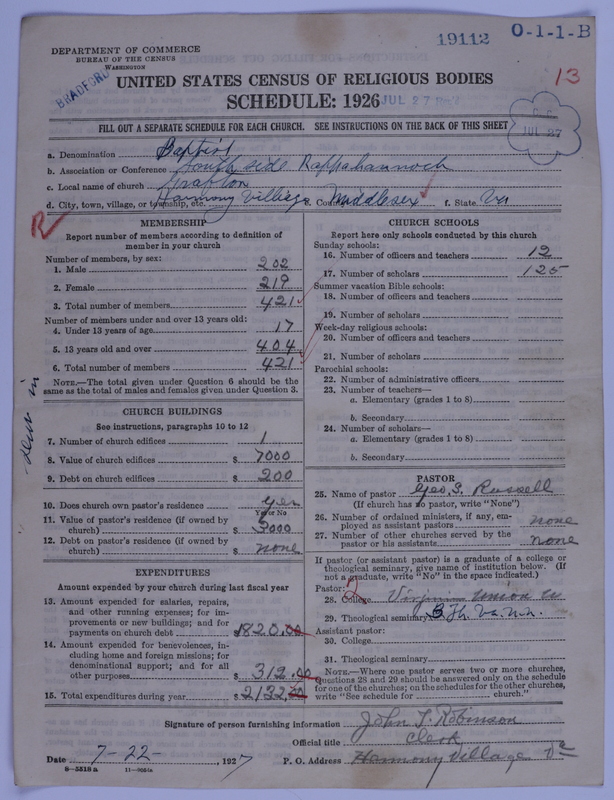 19112
O-1-1-B
DEPARTMENT OF COMMERCE
BUREAU OF THE CENSUS
WASHINGTON
BRADFORD
13
UNITED STATES CENSUS OF RELIGIOUS BODIES
SCHEDULE: 1926
JUL 27
FILL OUT A SEPARATE SCHEDULE FOR EACH CHURCH. SEE INSTRUCTIONS ON THE BACK OF THIS SHEET
JUL 27
a. Denomination Baptist
b. Association or Conference South side Rappahannock
c. Local name of church Grafton
d. City, town, village, or township, etc. Harmony Village e. County Middlesex f. State Va
R
MEMBERSHIP
Report number of members according to definition of member in your church
Number of members, by sex:
1. Male 202
2. Female 219
3. Total number of members 421
Number of members under and over 13 years old:
4. Under 13 years of age 17
5. 13 years old and over 404
6. Total number of members 421
NOTE.—The total given under Question 6 should be the same as the total of males and females given under Question 3.
CHURCH BUILDINGS
See instructions, paragraphs 10 to 12
7. Number of church edifices 1
8. Value of church edifices $ 7000
9. Debt on church edifices $ 200
10. Does church own pastor's residence yes
Yes or No
11. Value of pastor's residence (if owned by church) $ 3000
12. Debt on pastor's residence (if owned by church) $ none
EXPENDITURES
Amount expended by your church during last fiscal year
13. Amount expended for salaries, repairs, and other running expenses; for improvements or new buildings; and for payments on church debt $1820.00
14. Amount expended for benevolences, including home and foreign missions; for denominational support; and for all other purposes $ 312.00
15. Total expenditures during year $ 2132.00
CHURCH SCHOOLS
Report here only schools conducted by this church
Sunday schools:
16. Number of officers and teachers 12
17. Number of scholars 125
Summer vacation Bible schools:
18. Number of officers and teachers
19. Number of scholars
Week-day religious schools:
20. Number of officers and teachers
21. Number of scholars
Parochial schools:
22. Number of administrative officers
23. Number of teachers—
a. Elementary (grades 1 to 8)
b. Secondary
24. Number of scholars—
a. Elementary (grades 1 to 8)
b. Secondary
PASTOR
25. Name of pastor Geo. S. Russell
(If church has no pastor, write "None")
26. Number of ordained ministers, if any, employed as assistant pastors none
27. Number of other churches served by the pastor or his assistants none
If pastor (or assistant pastor) is a graduate of a college or theological seminary, give name of institution below. (If not a graduate, write "No" in the space indicated.)
Pastor: 2
28. College Virginia Union U
29. Theological seminary B.Th. Va. U.
Assistant pastor:
30. College
31. Theological seminary
NOTE.—Where one pastor serves two or more churches, Questions 28 and 29 should be answered only on the schedule for one of the churches; on the schedules for the other churches, write "See schedule for church."
Signature of person furnishing information John T. Robinson
Official title Clerk
Date 7-22-, 1927
P. O. Address Harmony Village Va
8-5518a 11-9051a